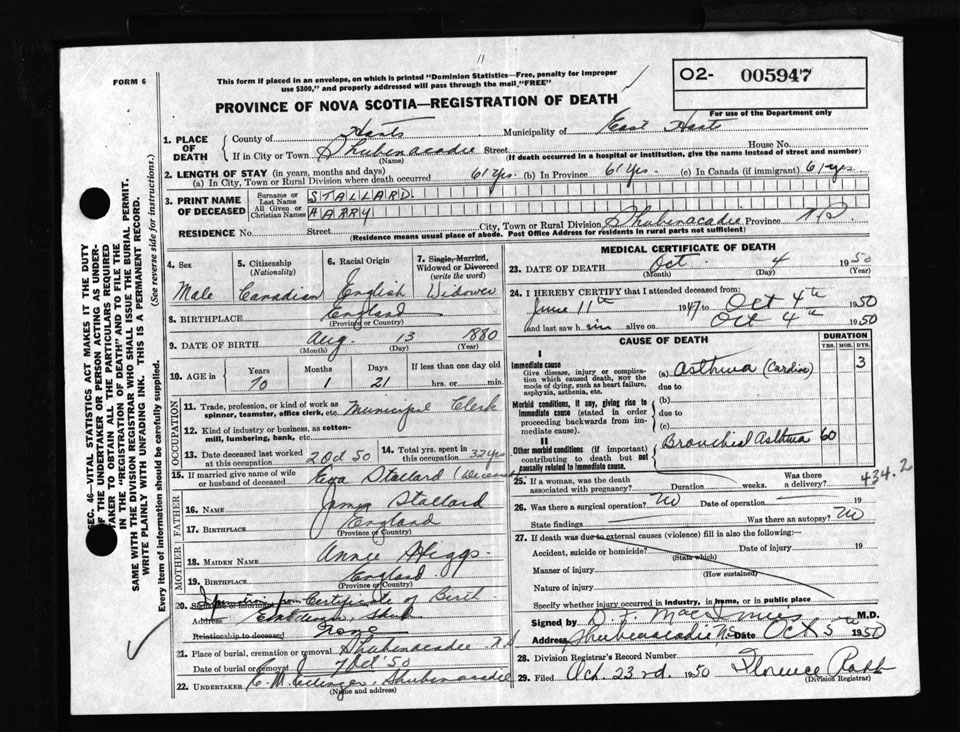 11
FORM 6
This form if placed in an envelope, on which is printed "Dominion Statistics—Free, penalty for improper
use $300," and properly addressed will pass through the mail, "FREE"
O2- 005947
For use of the Department only
PROVINCE OF NOVA SCOTIA—REGISTRATION OF DEATH
1. PLACE OF DEATH
County of Hants Municipality of East Hants
If in City or Town Shubenacadie Street House No.
(Name) (If death occurred in a hospital or institution, give the name instead of street and number)
2. LENGTH OF STAY (in years, months and days)
(a) In City, Town or Rural Division where death occurred 61 Yrs. (b) In Province 61 Yrs. (c) In Canada (if immigrant) 61 yrs
3. PRINT NAME OF DECEASED
Surname or Last Name STALLARD.
All Given or Christian Names HARRY
RESIDENCE No. Street City, Town or Rural Division Shubenacadie Province N.S.
(Residence means usual place of abode. Post Office Address for residents in rural parts not sufficient)
4. Sex Male
5. Citizenship (Nationality) Canadian
6. Racial Origin English
7. Single, Married, Widowed or Divorced (write the word) Widower
8. BIRTHPLACE England
(Province or Country)
9. DATE OF BIRTH Aug. 13 1880
(Month) (Day) (Year)
10. AGE in Years 70 Months 1 Days 21 If less than one day old hrs. or min.
OCCUPATION
11. Trade, profession, or kind of work as spinner, teamster, office clerk, etc. Municipal Clerk
12. Kind of industry or business, as cotton-mill, lumbering, bank, etc.
13. Date deceased last worked at this occupation 2 Oct 50
14. Total yrs. spent in this occupation 32 yrs
15. If married give name of wife or husband of deceased Stallard
FATHER
16. NAME Stallard
17. BIRTHPLACE England
(Province or Country)
MOTHER
18. MAIDEN NAME Annie Higgs
19. BIRTHPLACE England
(Province or Country)
20. Information from Certificate of Birth
Address
Relationship to deceased
21. Place of burial, cremation or removal Shubenacadie N S
Date of burial or removal 7 Oct '50
22. UNDERTAKER C. M. Shubenacadie
(Name and address)
MEDICAL CERTIFICATE OF DEATH
23. DATE OF DEATH Oct. 4 1950
(Month) (Day) (Year)
24. I HEREBY CERTIFY that I attended deceased from:
June 11th 1947 to Oct 4th 1950
and last saw him alive on Oct 4th 1950
CAUSE OF DEATH
DURATION
YRS. MOS. DYS.
I
Immediate cause
Give disease, injury or complication which caused death, not the mode of dying, such as heart failure, asphyxia, asthenia, etc.
(a) Asthma (Cardiac) 3
due to
Morbid conditions, if any, giving rise to immediate cause (stated in order proceeding backwards from immediate cause).
(b)
due to
(c)
II
Other morbid conditions (if important) contributing to death but not causally related to immediate cause.
Bronchial Asthma 60
434.2
25. If a woman, was the death associated with pregnancy? Duration weeks. Was there a delivery?
26. Was there a surgical operation? No Date of operation 19
State findings Was there an autopsy? No
27. If death was due to external causes (violence) fill in also the following:
Accident, suicide or homicide? Date of injury 19
(State which)
Manner of injury
(How sustained)
Nature of injury
Specify whether injury occurred in industry, in home, or in public place
Signed by M.D.
Address Shubenacadie N.S. Date Oct 5th 1950
28. Division Registrar's Record Number
29. Filed Oct. 23rd. 1950 Florence Rabb
(Division Registrar)
SEC. 46—VITAL STATISTICS ACT MAKES IT THE DUTY
OF THE UNDERTAKER OR PERSON ACTING AS UNDER-
TAKER TO OBTAIN ALL THE PARTICULARS REQUIRED
IN THE "REGISTRATION OF DEATH" AND TO FILE THE
SAME WITH THE DIVISION REGISTRAR WHO SHALL ISSUE THE BURIAL PERMIT.
WRITE PLAINLY WITH UNFADING INK. THIS IS A PERMANENT RECORD.
Every item of information should be carefully supplied. (See reverse side for instructions.)